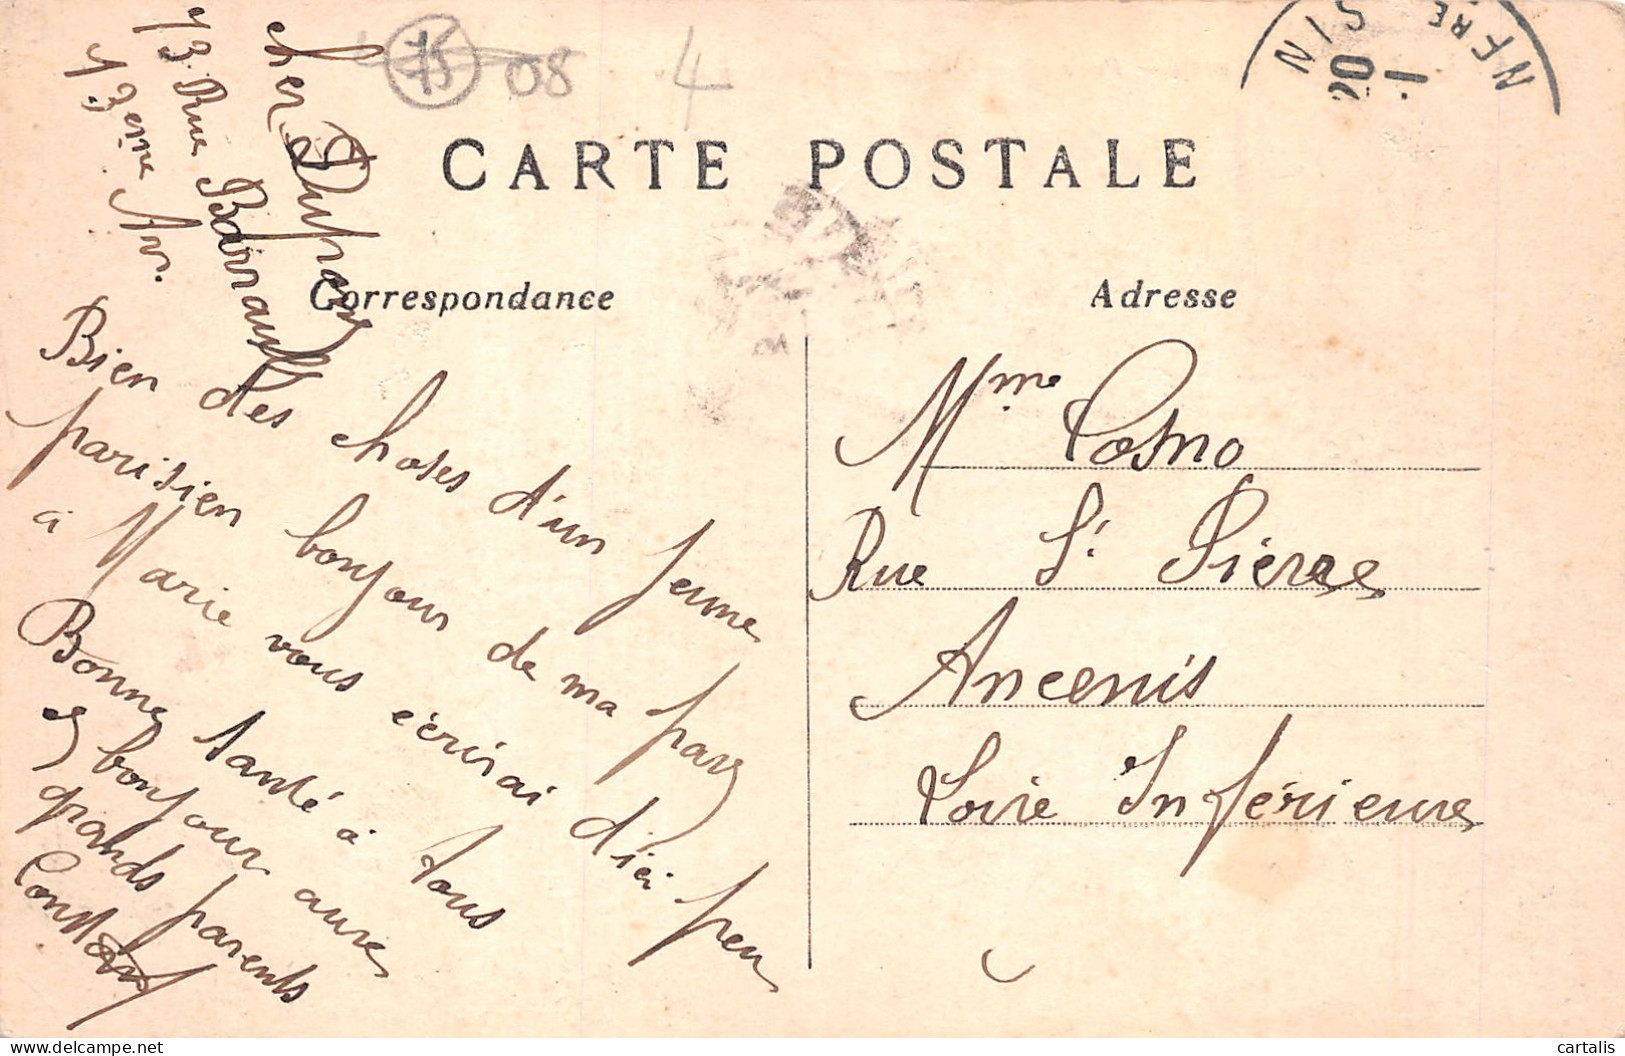 75
08
4
NIS
20
1
NFRE
CARTE POSTALE
Correspondance
Adresse
cher Dufrene
73 Rue Barrault
13eme Arr.
Bien des choses d'un jeune
parisien bonjour de ma part
à Marie vous écrirai d'ici peu
Bonne santé à tous
et bonjour aux
grands parents
Constant
Mme Cosno
Rue St Pierre
Ancenis
Loire Inférieure
cartalis